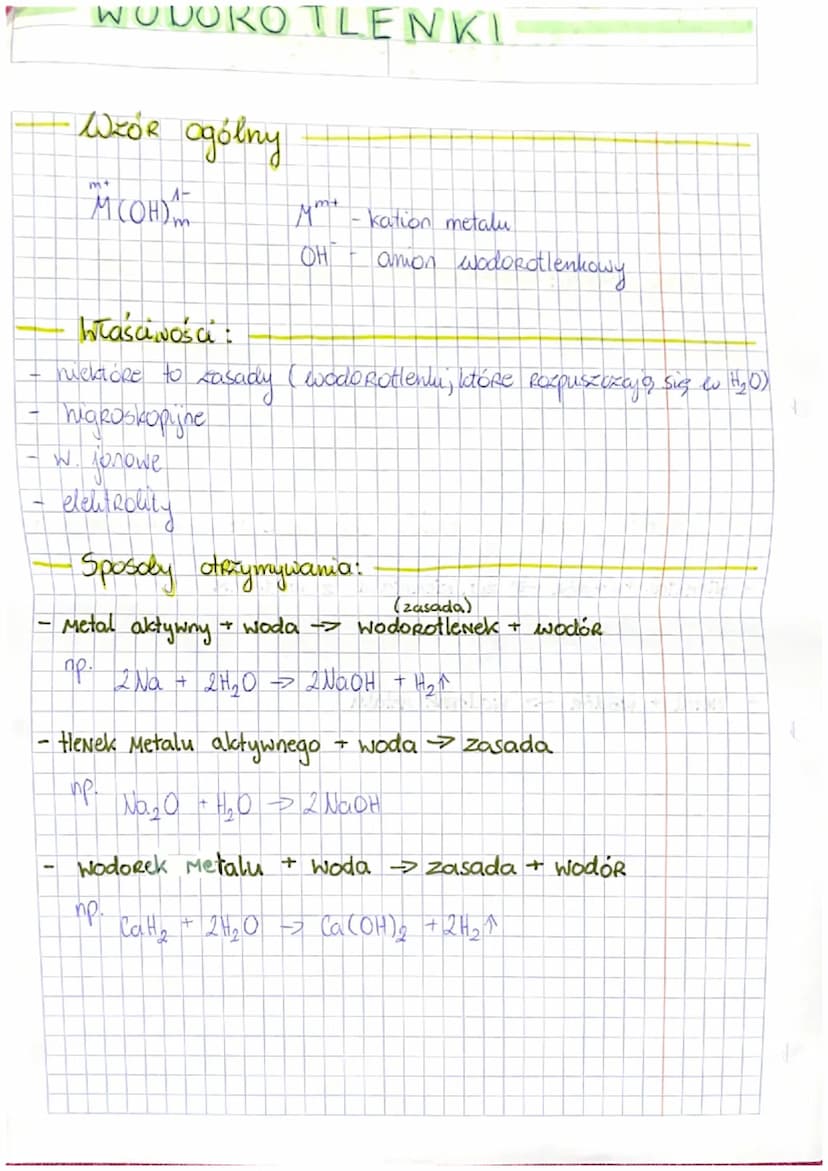 WODOROTLENKI
Wzór ogólny
M^{m+}(OH)_m^{1-}
M^{m+} - kation metalu
OH^- - anion wodorotlenkowy
Właściwości:
- niektóre to zasady (wodorotlenki, które rozpuszczają się w H₂O)
- higroskopijne
- w. jonowe
- elektrolity
Sposoby otrzymywania:
(zasada)
- Metal aktywny + woda → wodorotlenek + wodór
np. 2Na + 2H₂O → 2NaOH + H₂↑
- tlenek Metalu aktywnego + woda → zasada
np. Na₂O + H₂O → 2NaOH
- wodorek Metalu + woda → zasada + wodór
np. CaH₂ + 2H₂O → Ca(OH)₂ + 2H₂↑